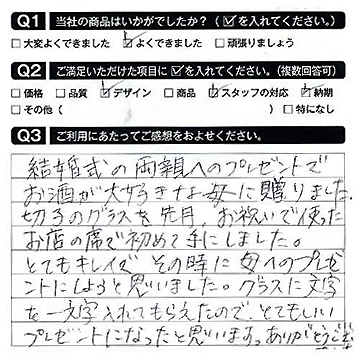 Q1 当社の商品はいかがでしたか？（☑を入れてください。）
□大変よくできました ☑よくできました □頑張りましょう
Q2 ご満足いただけた項目に☑を入れてください。（複数回答可）
□価格 □品質 ☑デザイン □商品 ☑スタッフの対応 ☑納期
□その他（ ）□特になし
Q3 ご利用にあたってご感想をおよせください。
結婚式の両親へのプレゼントで
お酒が大好きな母に贈りました。
切子のグラスを先月、お祝いで使った
お店の席で初めて手にしました。
とてもキレイで その時に母へのプレゼ
ントにしようと思いました。グラスに文字
を一文字入れてもらえたので、とてもいい
プレゼントになったと思います。ありがとうござ